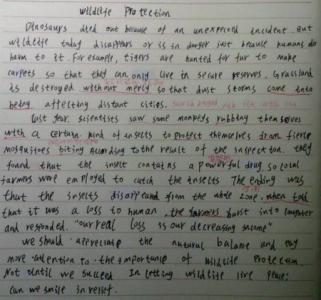 Wildlife Protection
Dinosaurs died out because of an unexpected incident. But
wildlife today disappears or is in danger just because humans do
harm to it. For example, tigers are hunted for fur to make
carpets so that they can only live in secure reserves. Grassland
is destroyed without mercy so that dust storms come into
being affecting distant cities.
Last year, scientists saw some monkeys rubbing themselves
with a certain kind of insects to protect themselves from fierce
mosquitoes biting. According to the result of the inspection, they
found that the insect contains a powerful drug so local
farmers were employed to catch the insects. The ending was
that the insects disappeared from the whole zone. when told
that it was a loss to human, the farmers burst into laughter
and responded, "our real loss is our decreasing income"
we should appreciate the natural balance and pay
more attention to the importance of wildlife protection.
Not until we succeed in letting wildlife live peace
can we smile in relief.